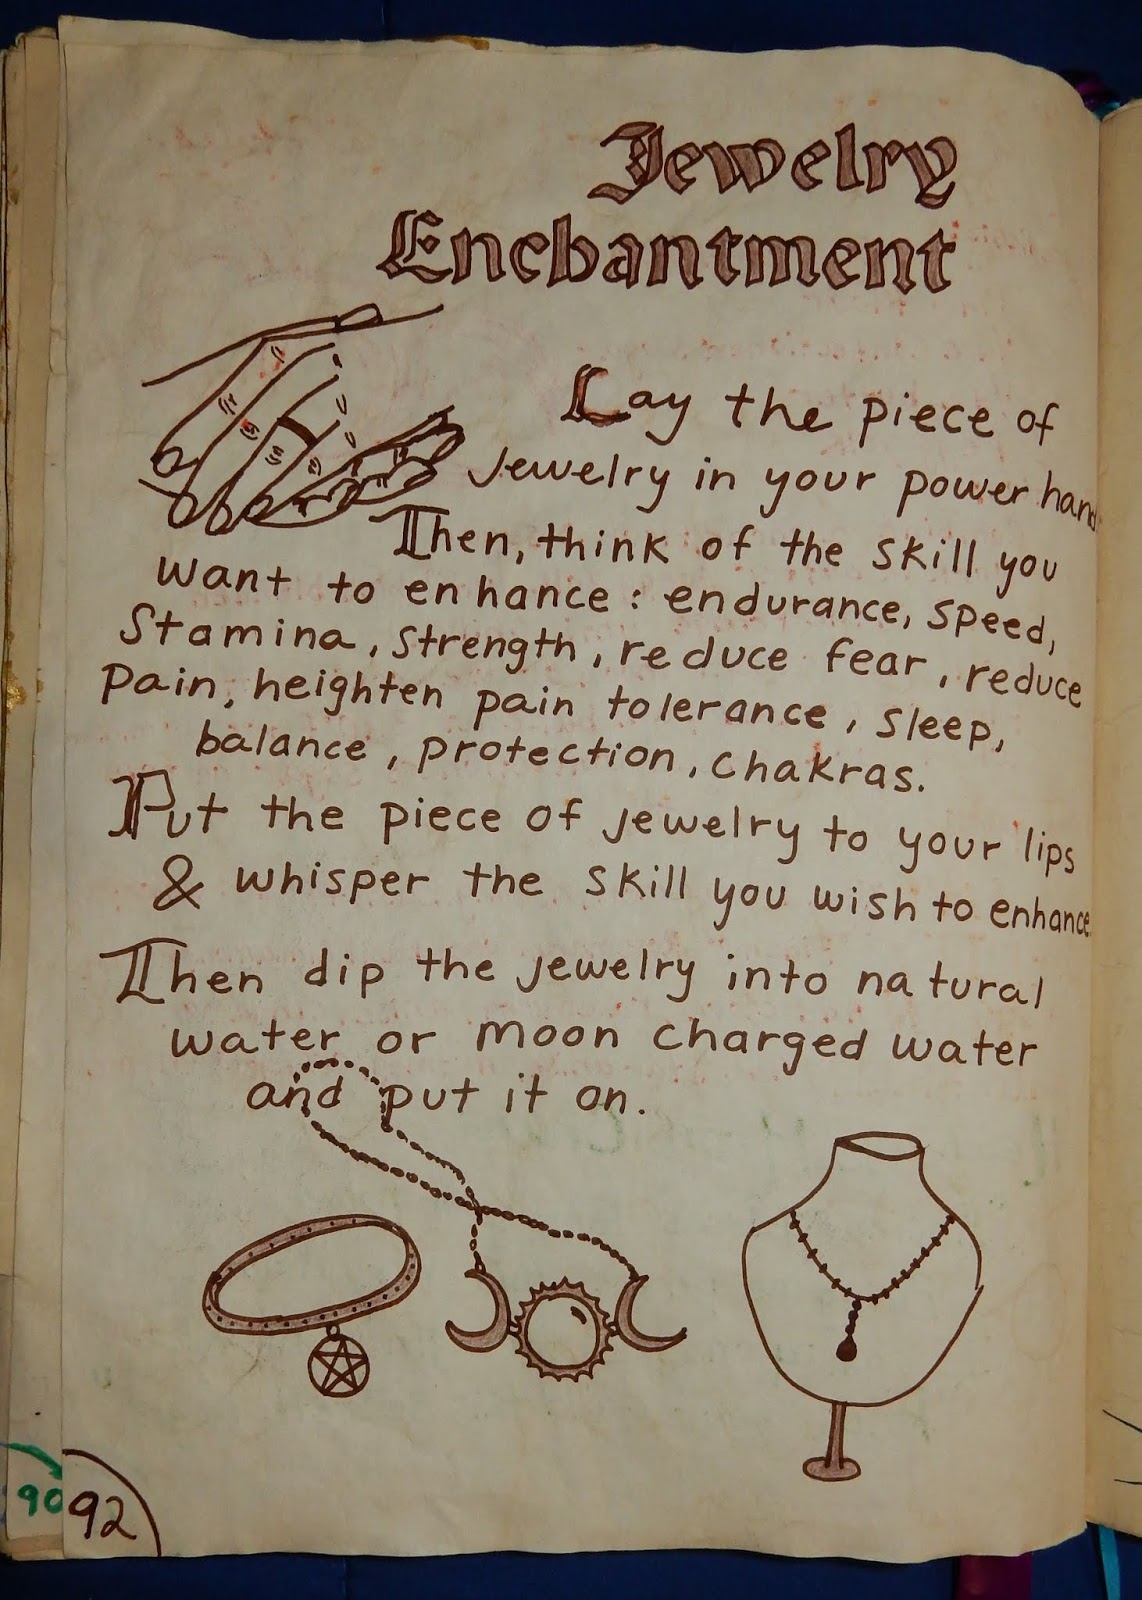 Jewelry
Enchantment
Lay the piece of
jewelry in your power hand
Then, think of the skill you
want to enhance: endurance, speed,
Stamina, strength, reduce fear, reduce
Pain, heighten pain tolerance, sleep,
balance, protection, chakras.
Put the piece of jewelry to your lips
& whisper the skill you wish to enhance.
Then dip the jewelry into natural
water or moon charged water
and put it on.
90
92